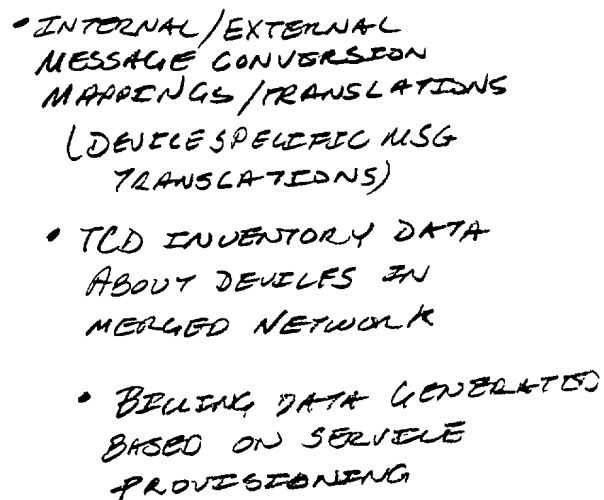 • INTERNAL/EXTERNAL
MESSAGE CONVERSION
MAPPINGS/TRANSLATIONS
(DEVICE SPECIFIC MSG
TRANSLATIONS)
• TCD INVENTORY DATA
ABOUT DEVICES IN
MERGED NETWORK
• BILLING DATA GENERATED
BASED ON SERVICE
PROVISIONING